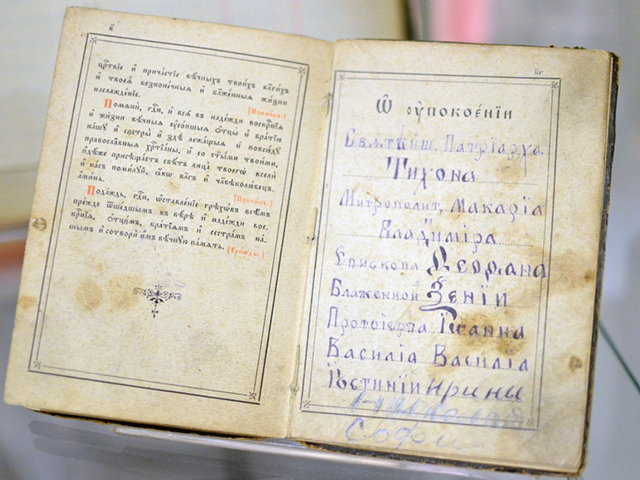 црⷭ҇твїе и причастїе вѣчныхъ твоихъ благихъ
и твоеѧ безконечныѧ и блаженныѧ жизни
наслажденїе.
[Поклонъ.]
Помѧни, гдⷭ҇и, и всѧ въ надежди воскрⷭ҇нїѧ
и жизни вѣчныѧ ѹсопшыѧ отцы и братїю
нашу и сестры и здѣ лежащыѧ и повсюду
православныѧ хрⷭ҇тїаны, и со ст҃ыми твоими,
идѣже присѣщаетъ свѣтъ лица твоегѡ всели
и насъ помилуй, ꙗкѡ блгъ и чл҃вѣколюбецъ.
Аминь.
[Поклонъ.]
Подаждь, гдⷭ҇и, ѡставленїе грѣхѡвъ всѣмъ
прежде ѿшедшымъ въ вѣрѣ и надежди вос-
крⷭ҇нїѧ, ѹтцемъ, братїѧмъ и сестрамъ на-
шымъ и сотвори имъ вѣчную память. [Трижды]
Ѡ ѹпокоенїи
Святѣйш. Патрїарха
Тихона
Митрополит. Макарїа
Владиміра
Епископа
Блаженной Ѯенїи
Протоїерея Їоанна
Василїа Василїа
Іѹстинїи Ирины
Софи